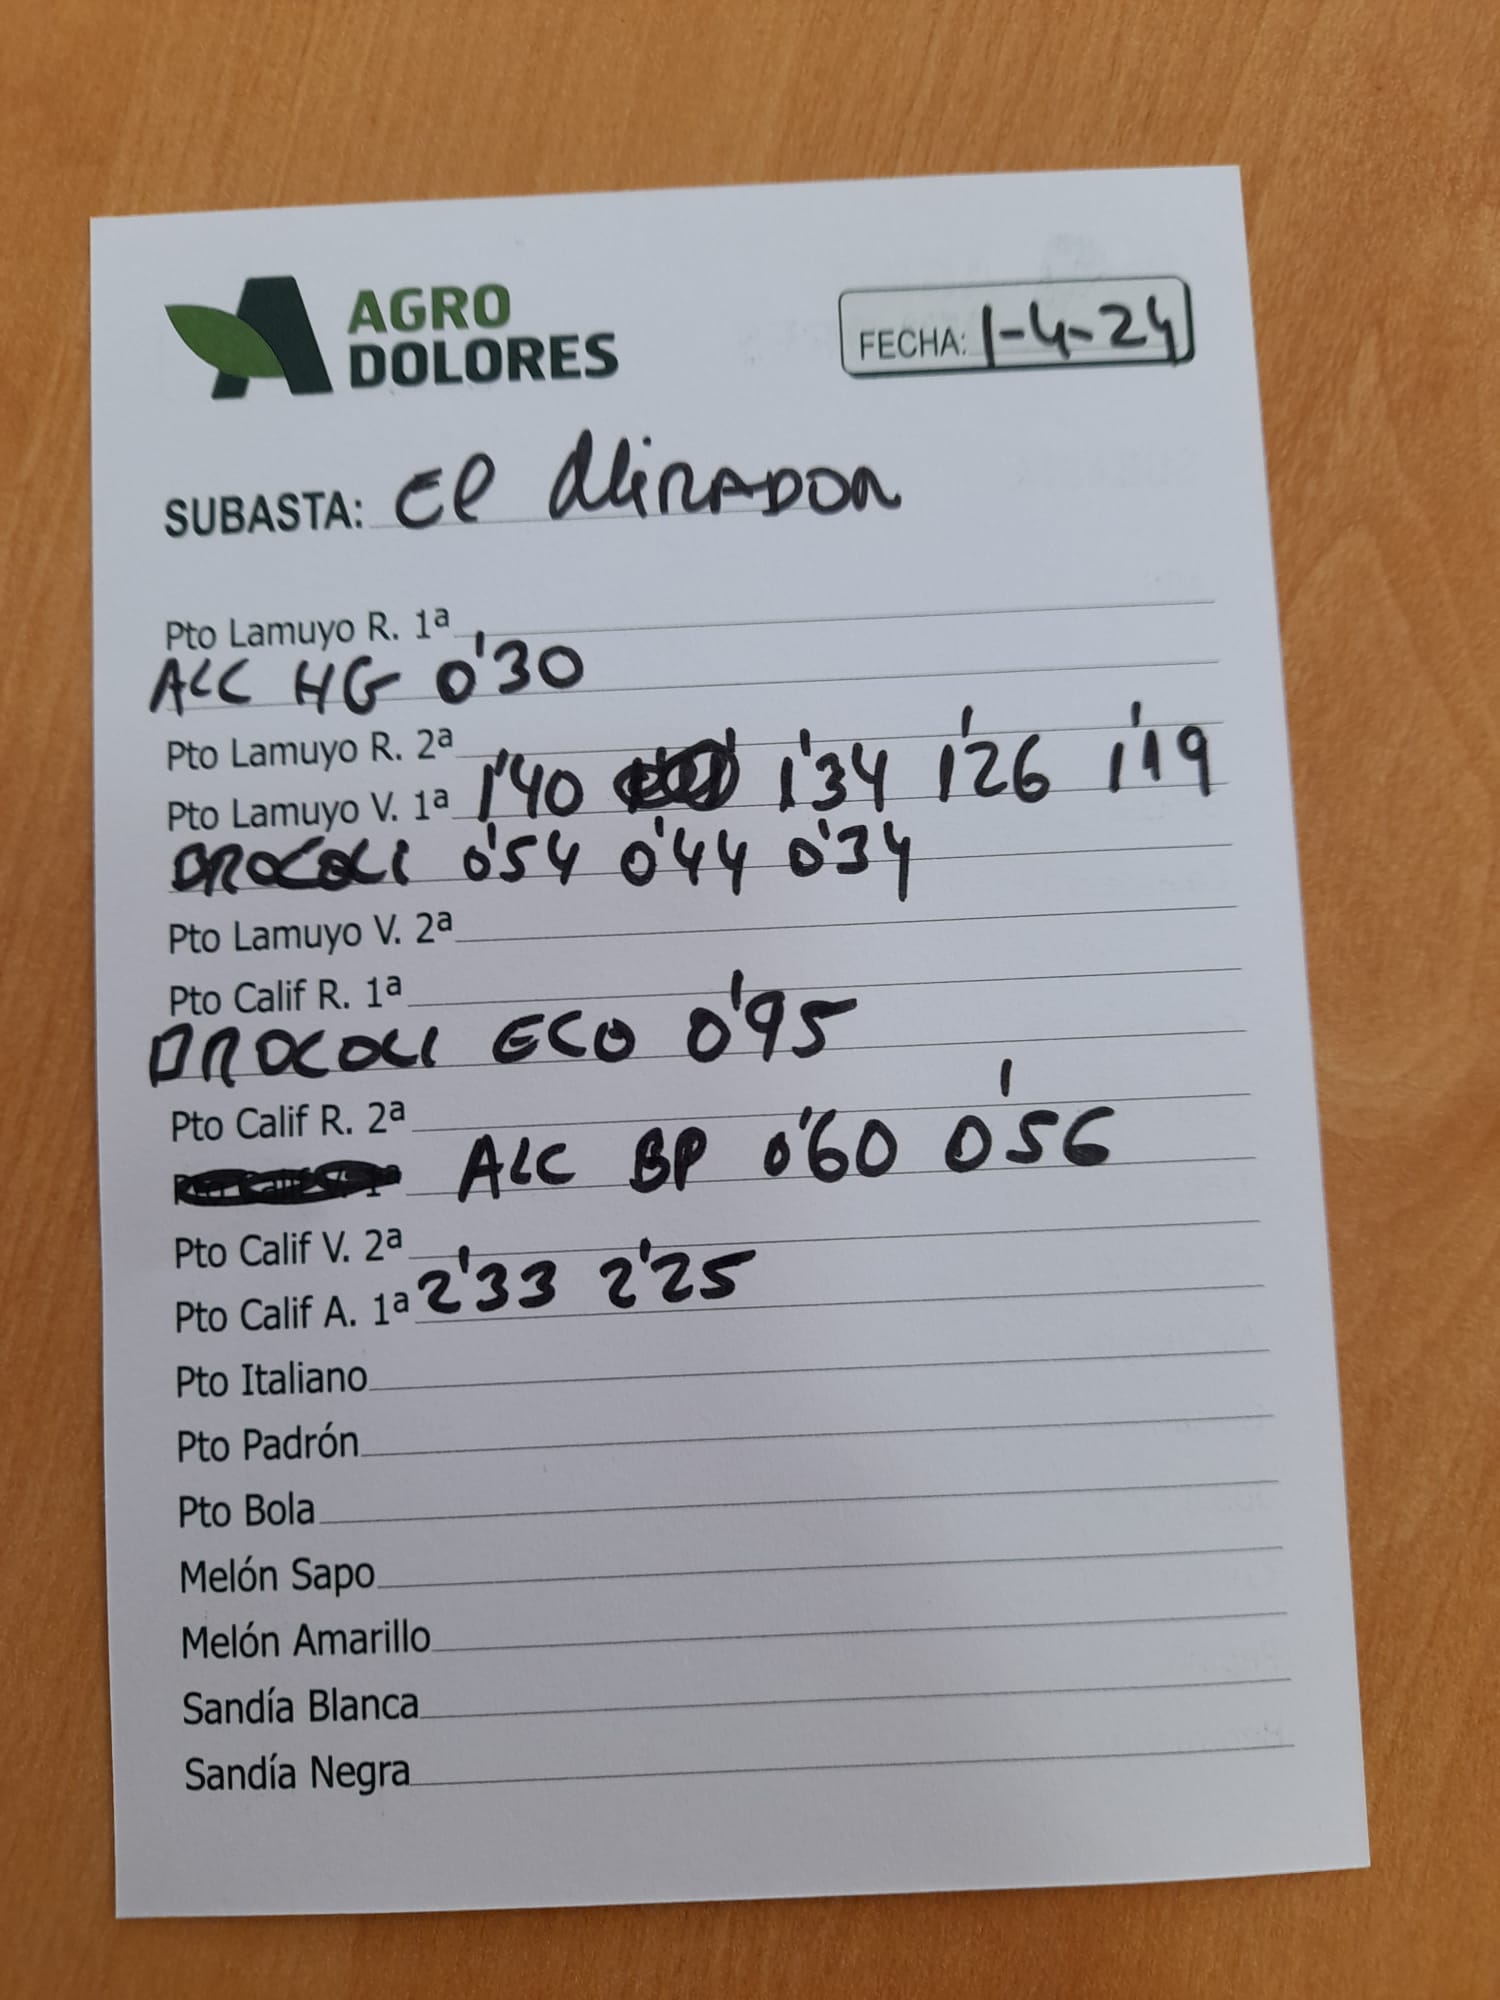 AGRO
DOLORES
FECHA: 1-4-24
SUBASTA: El MiRADOR
Pto Lamuyo R. 1ª
ALC HG 0'30
Pto Lamuyo R. 2ª
Pto Lamuyo V. 1ª 1'40 1'34 1'26 1'19
BROCOLI 0'54 0'44 0'34
Pto Lamuyo V. 2ª
Pto Calif R. 1ª
BROCOLI ECO 0'95
Pto Calif R. 2ª
ALC BP 0'60 0'56
Pto Calif V. 2ª
Pto Calif A. 1ª 2'33 2'25
Pto Italiano
Pto Padrón
Pto Bola
Melón Sapo
Melón Amarillo
Sandía Blanca
Sandía Negra